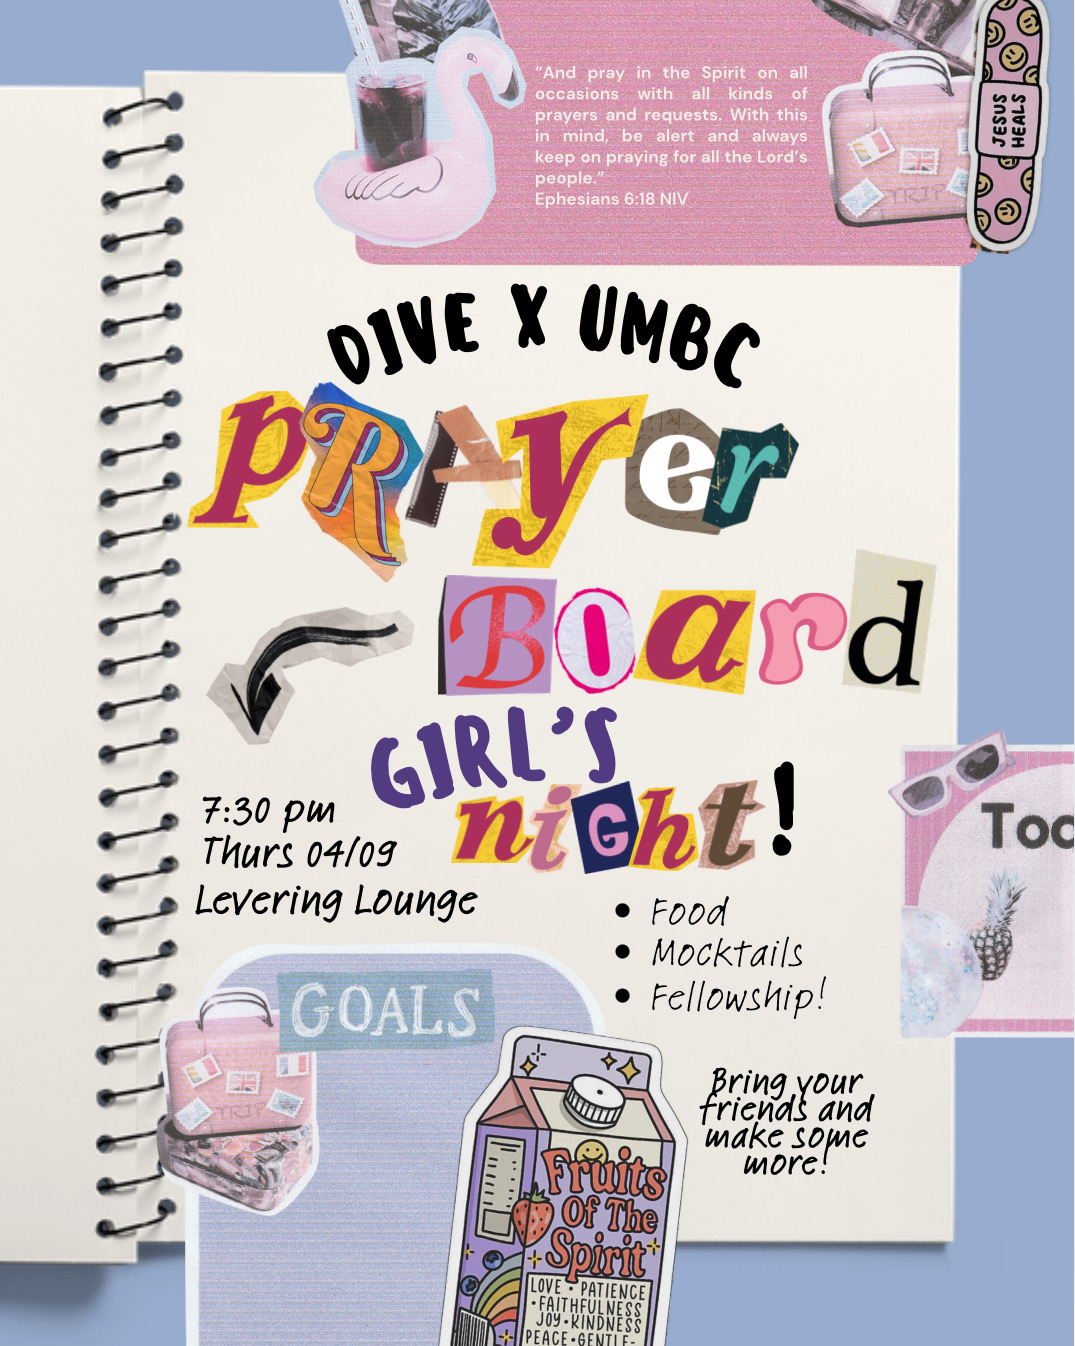 “And pray in the Spirit on all
occasions with all kinds of
prayers and requests. With this
in mind, be alert and always
keep on praying for all the Lord’s
people.”
Ephesians 6:18 NIV
JESUS
HEALS
TRIP
DIVE X UMBC
PRAyer
BOard
GIRL'S
niGht!
7:30 pm
Thurs 04/09
Levering Lounge
• Food
• Mocktails
• Fellowship!
GOALS
TRIP
Bring your
friends and
make some
more!
Fruits
Of The
Spirit
LOVE • PATIENCE
• FAITHFULNESS
JOY • KINDNESS
PEACE • GENTLE-